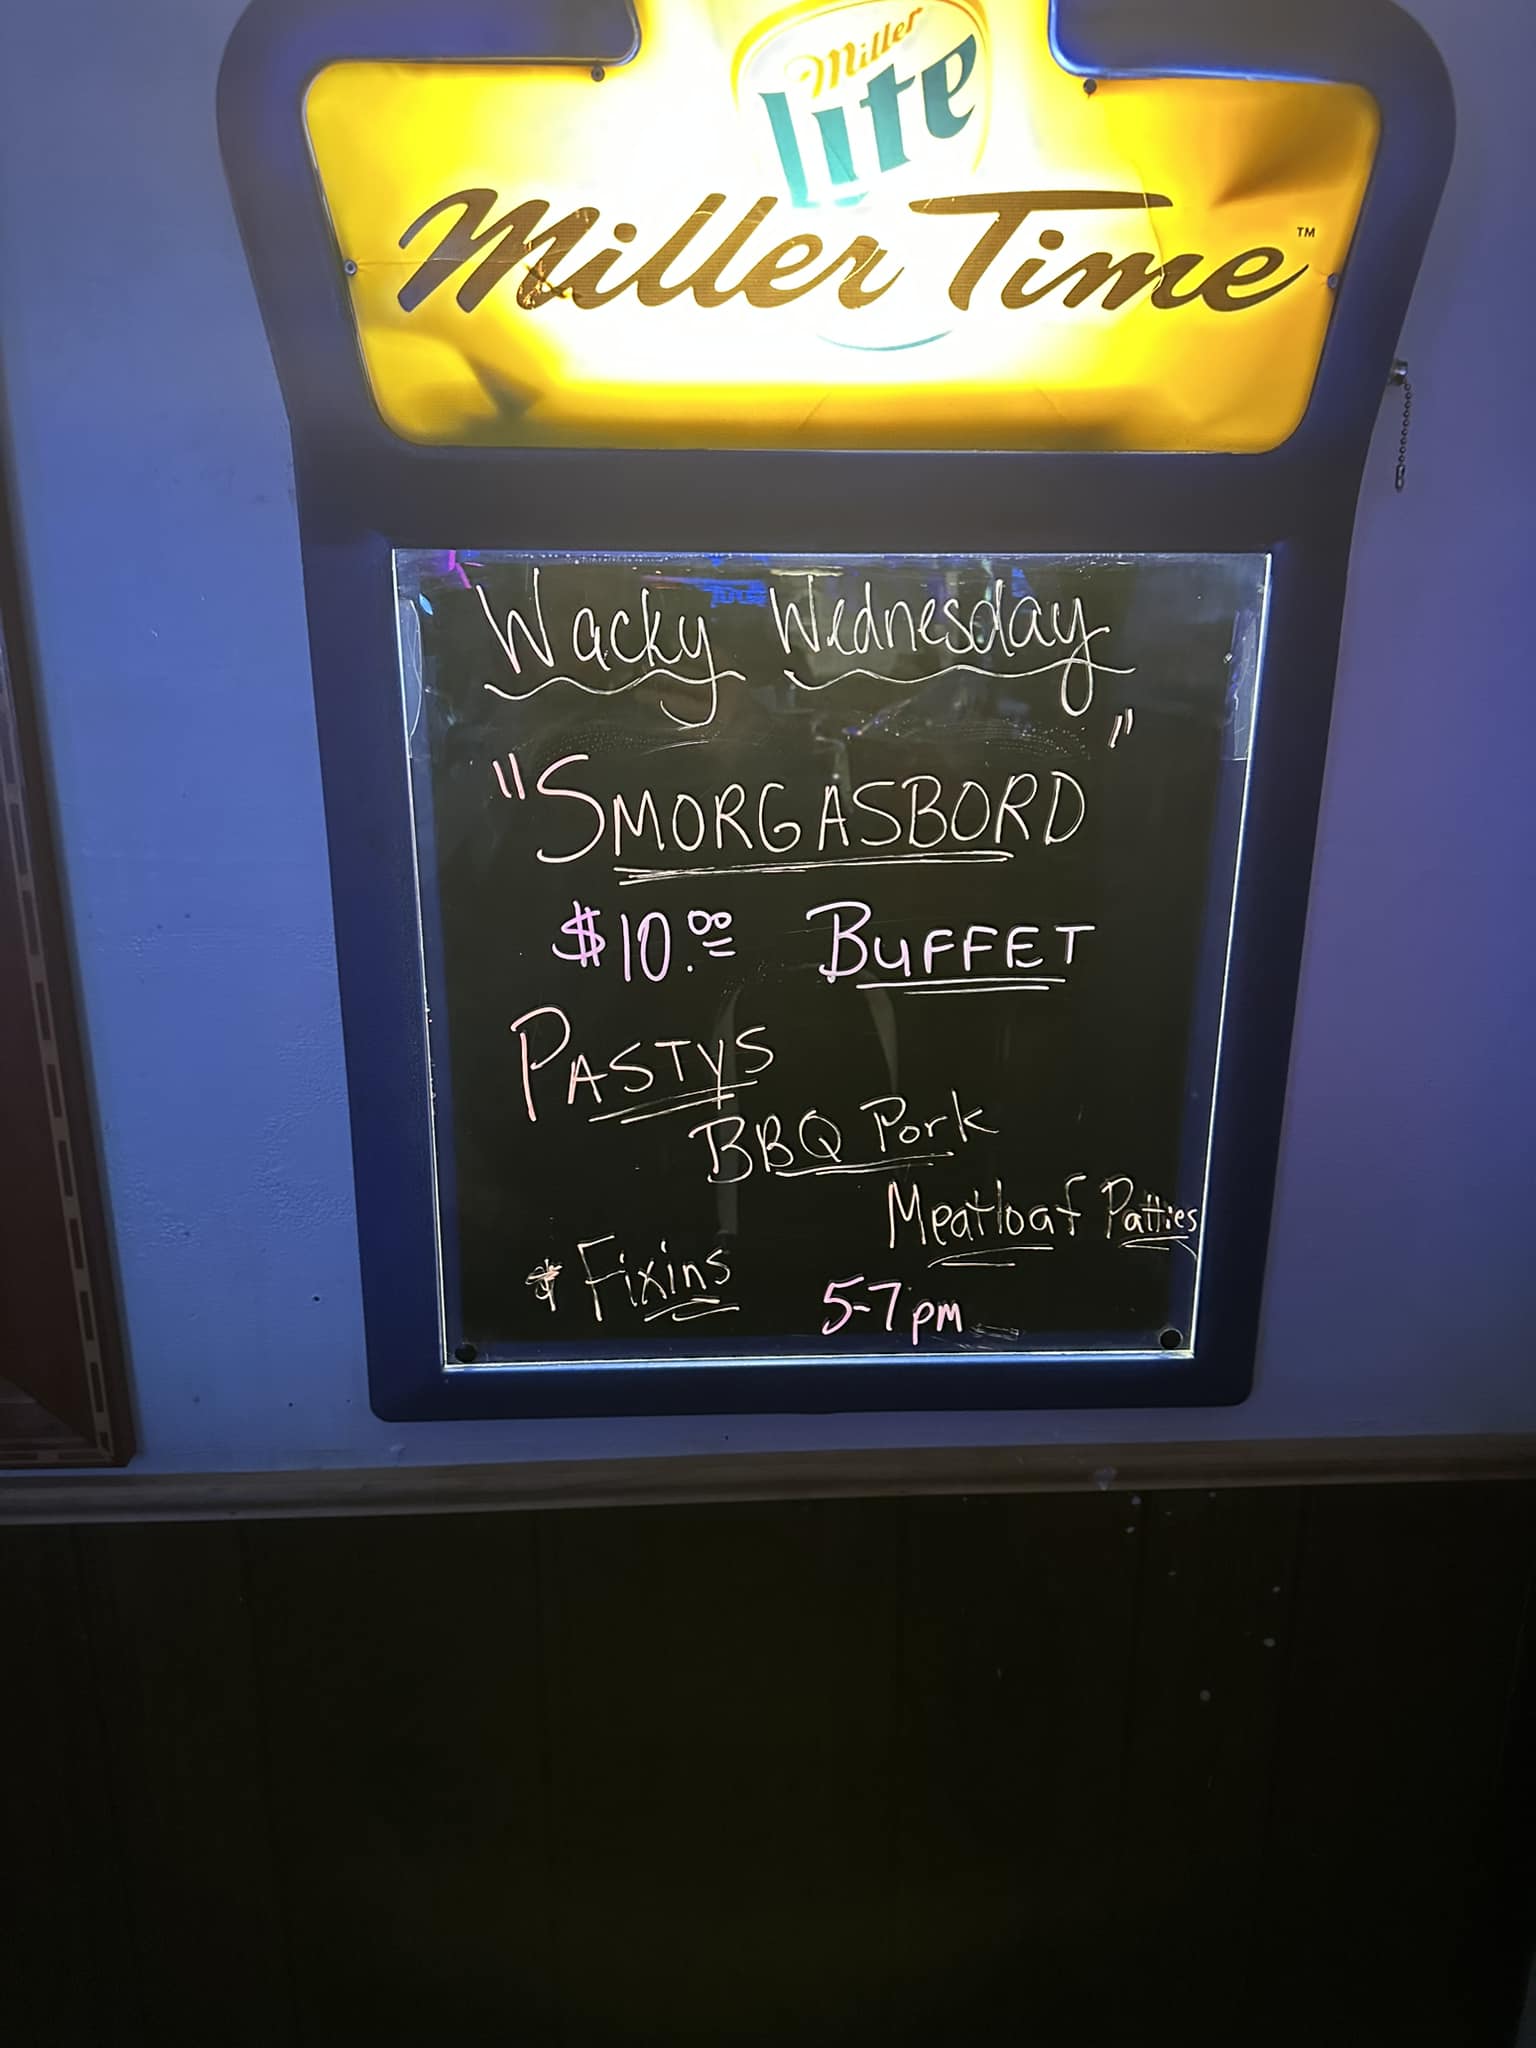 Miller
lite
Miller Time™
Wacky Wednesday
"SMORGASBORD"
$10.00 BUFFET
PASTYS
BBQ Pork
Meatloaf Patties
& Fixins 5-7pm